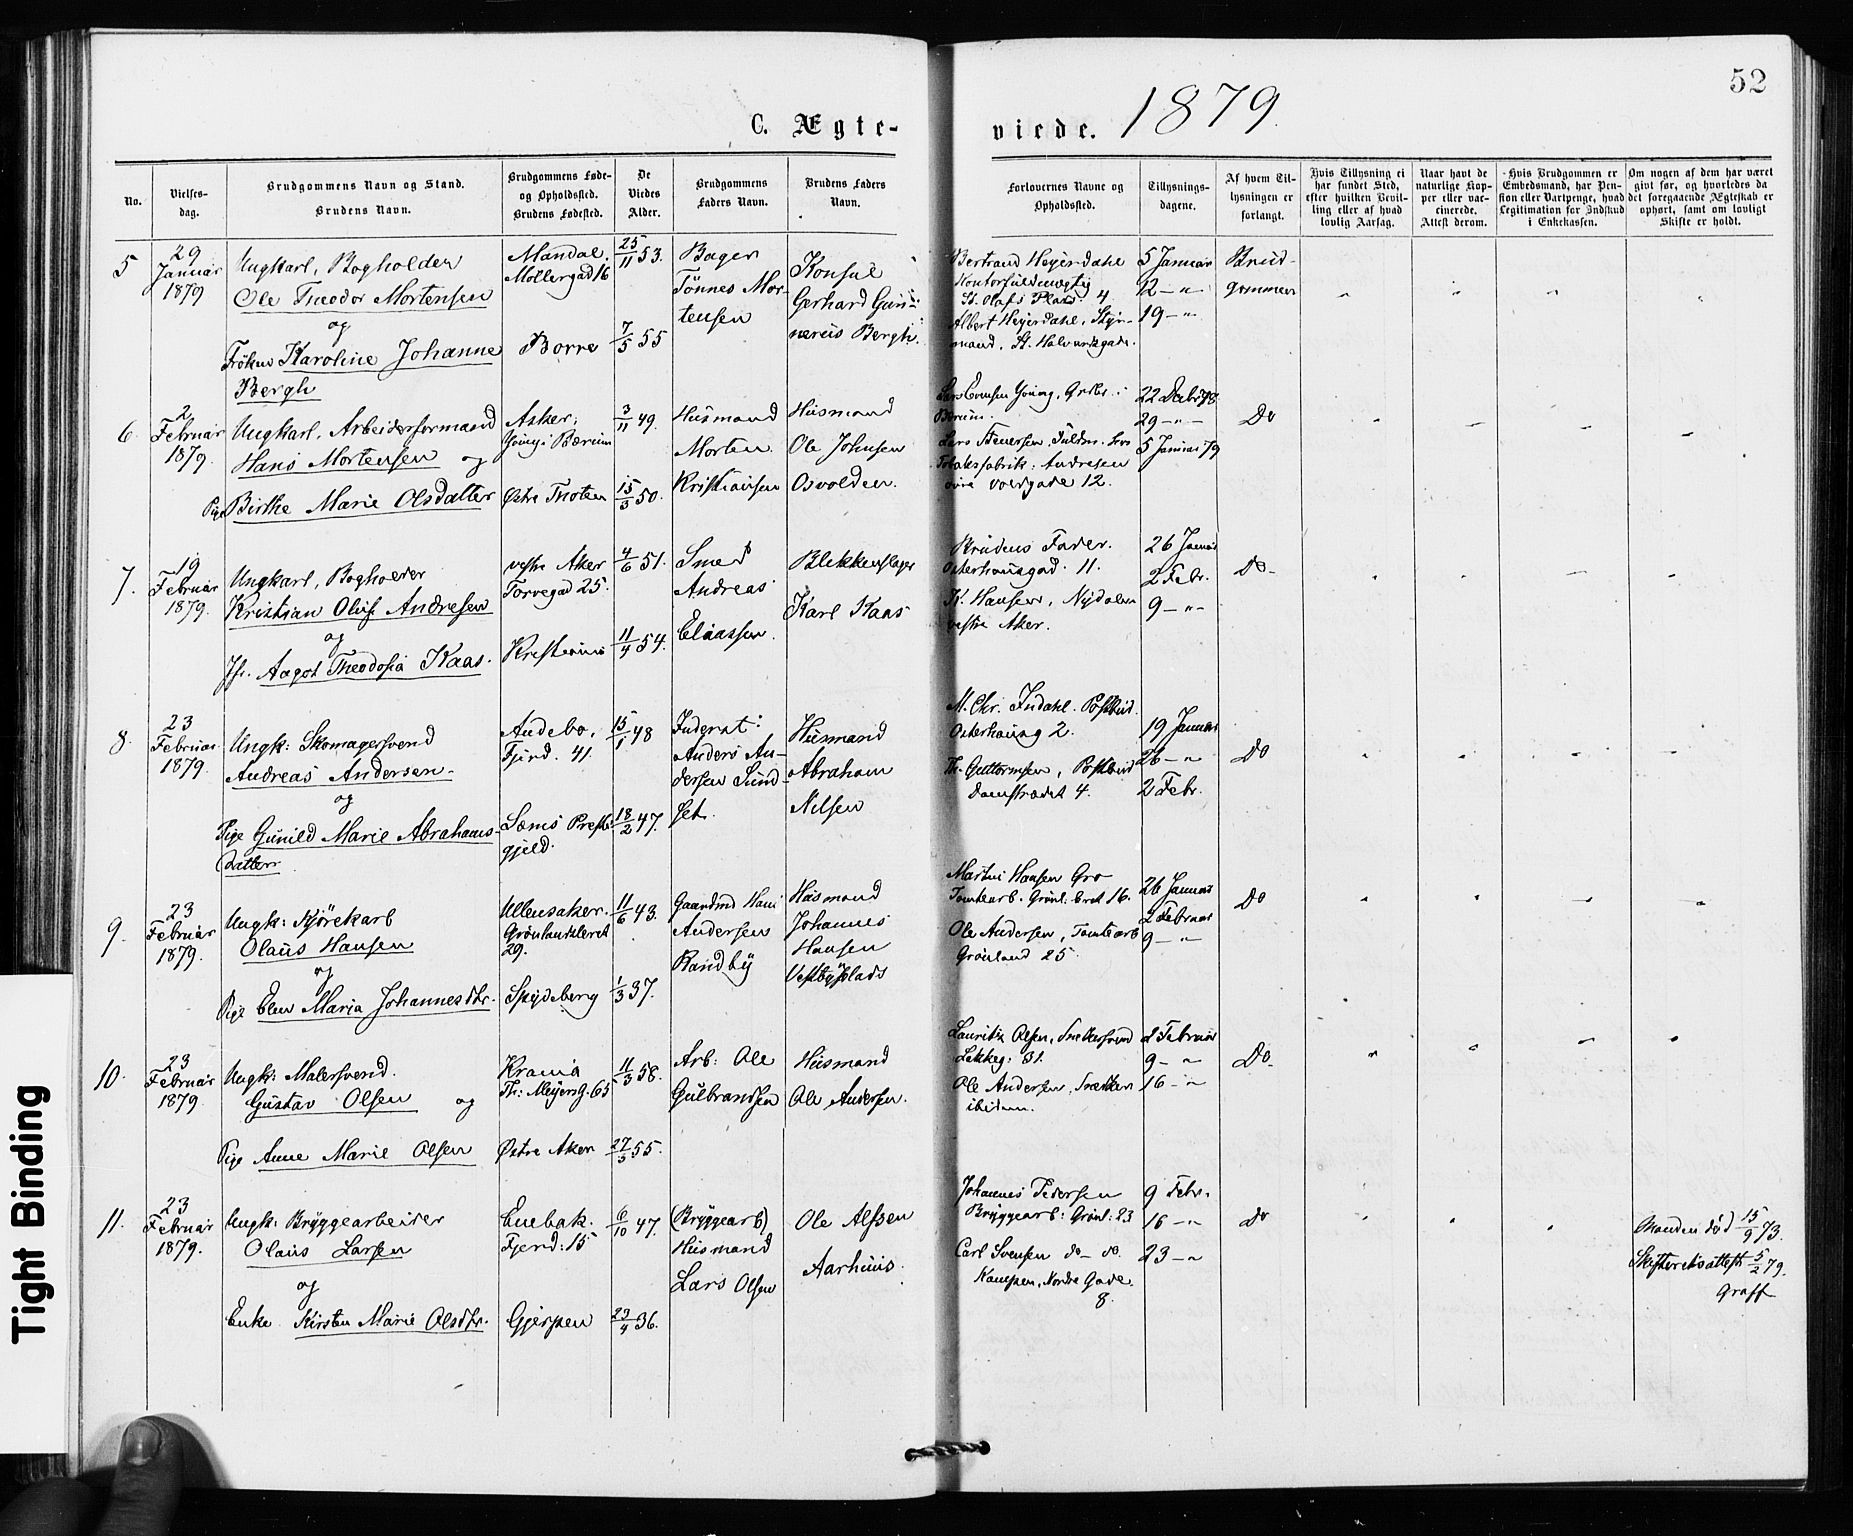 52
C. Ægte-
viede. 1879.
No.
Vielses-
dag.
Brudgommens Navn og Stand.
Brudens Navn.
Brudgommens Føde-
og Opholdssted.
Brudens Fødested.
De
Viedes
Alder.
Brudgommens
Faders Navn.
Brudens Faders
Navn.
Forlovernes Navne og
Opholdssted.
Tillysnings-
dagene.
Af hvem Til-
lysningen er
forlangt.
Hvis Tillysning ei
har fundet Sted,
efter hvilken Bevil-
ling eller af hvad
lovlig Aarsag.
Naar havt de
naturlige Kop-
per eller vac-
cinerede.
Attest derom.
Hvis Brudgommen er
Embedsmand, har Pen-
sion eller Vartpenge, hvad
Legitimation for Indskud
i Enkekassen.
Om nogen af dem har været
givt før, og hvorledes da
det foregaaende Ægteskab er
ophørt, samt om lovligt
Skifte er holdt.
5
29
Januar
1879
Ungkarl, Bogholder
Ole Theodor Mortensen
og
Frøken Karoline Johanne
Bergh
Mandal.
Møllergad 16
Borre
25/11 53.
7/5 55
Bager
Tönnes Mor-
tensen
Konsul
Gerhard Gun-
nereus Bergh.
Bertrand Heyerdahl
Kontorfuldmægtig
St. Olafs Plads. 4
Albert Heyerdahl, Styr-
mand. St. Halvardsgade.
5 Januar
12 - "
19 - "
Brud-
gommen
6
2
Februar
1879.
Ungkarl, Arbeiderformand
Hans Mortensen og
Pige Birthe Marie Olsdatter
Asker,
Young i Bærum
Østre Thoten
3/11 49.
15/3 50.
Husmand
Morten
Kristiansen
Husmand
Ole Johnsen
Osvolden.
Lars Evensen Young, Grdbr. i
Bærum.
Lars Steversen, Fuldm. hos
Tobaksfabrik. Andresen
Voldgade 12.
22 Decbr 78
29 - "
5 Januar 79
Do
7.
19
Februar
1879.
Ungkarl, Bogholder
Kristian Oluf Andresen
og
Jfr. Aagot Theodosia Kaas.
vestre Aker
Torvegad 25.
Kristiania
4/6 51.
11/4 54.
Smed
Andreas
Eliassen.
Blikkenslager
Karl Kaas
Brudens Fader.
Osterhausgad. 11.
K. Hansen, Nydalen
vestre Aker.
26 Januar
2 Febr.
9 - "
Do-
8.
23
Februar
1879
Ungk: Skomagersvend
Andreas Andersen.
og
Pige Gunild Marie Abrahams-
datter
Andebo,
Fjerd. 41.
Sems Preste-
gjeld.
15/1 48
18/2 47.
Inderst:
Anders An-
dersen Sund-
set.
Husmand
Abraham
Nilsen
M. Chr. Indahl. Postbud.
Osterhausg 2.
Th. Guttormsen, Postbud
Damstrædet 4.
19 Januar
26 - "
2 Febr.
Do
9.
23
Februar
1879.
Ungk: Kjørekarl
Olaus Hansen
og
Pige Elen Maria Johannesdtr.
Ullensaker.
Grønlandsleret
29.
Spydeberg
11/6 43.
1/3 37.
Gaardmd Hans
Andersen
Randby
Husmand
Johannes
Hansen
Vestbyplads
Martin Hansen Gro
Tomtearb. Grønl. Eret 16.
Ole Andersen, Tomtearb
Grønland 25
26 Januar
2 Februar
9 - "
Do
10.
23
Februar
1879.
Ungk: Malersvend.
Gustav Olsen og
Pige Anne Marie Olsen
Krania
Th: Meyersg. 65
Østre Aker
11/3 58.
27/5 55.
Arb: Ole
Gulbrandsen
Husmand
Ole Andersen.
Lauritz Olsen, Snekkersvend
Lakkeg: 31.
Ole Andersen, Snekker
ibidem.
2 Februar
9 - "
16 - "
Do
11.
23
Februar
1879.
Ungk: Bryggearbeider
Olaus Larsen
og
Enke Kirsten Marie Olsdtr.
Enebak.
Fjerd: 15
Gjerpen
6/10 47.
23/4 36.
(Bryggearb)
Husmand
Lars Olsen
Ole Alfsen
Aarhuus.
Johannes Pedersen
Bryggearb: Grønl: 23
Carl Svensen do - do.
Kampen, Nordre Gade
8.
9 Febr.
16 - "
23 - "
Do
Manden død 15/9 73.
Skifteretsattest 5/2 79.
Graff
Tight Binding